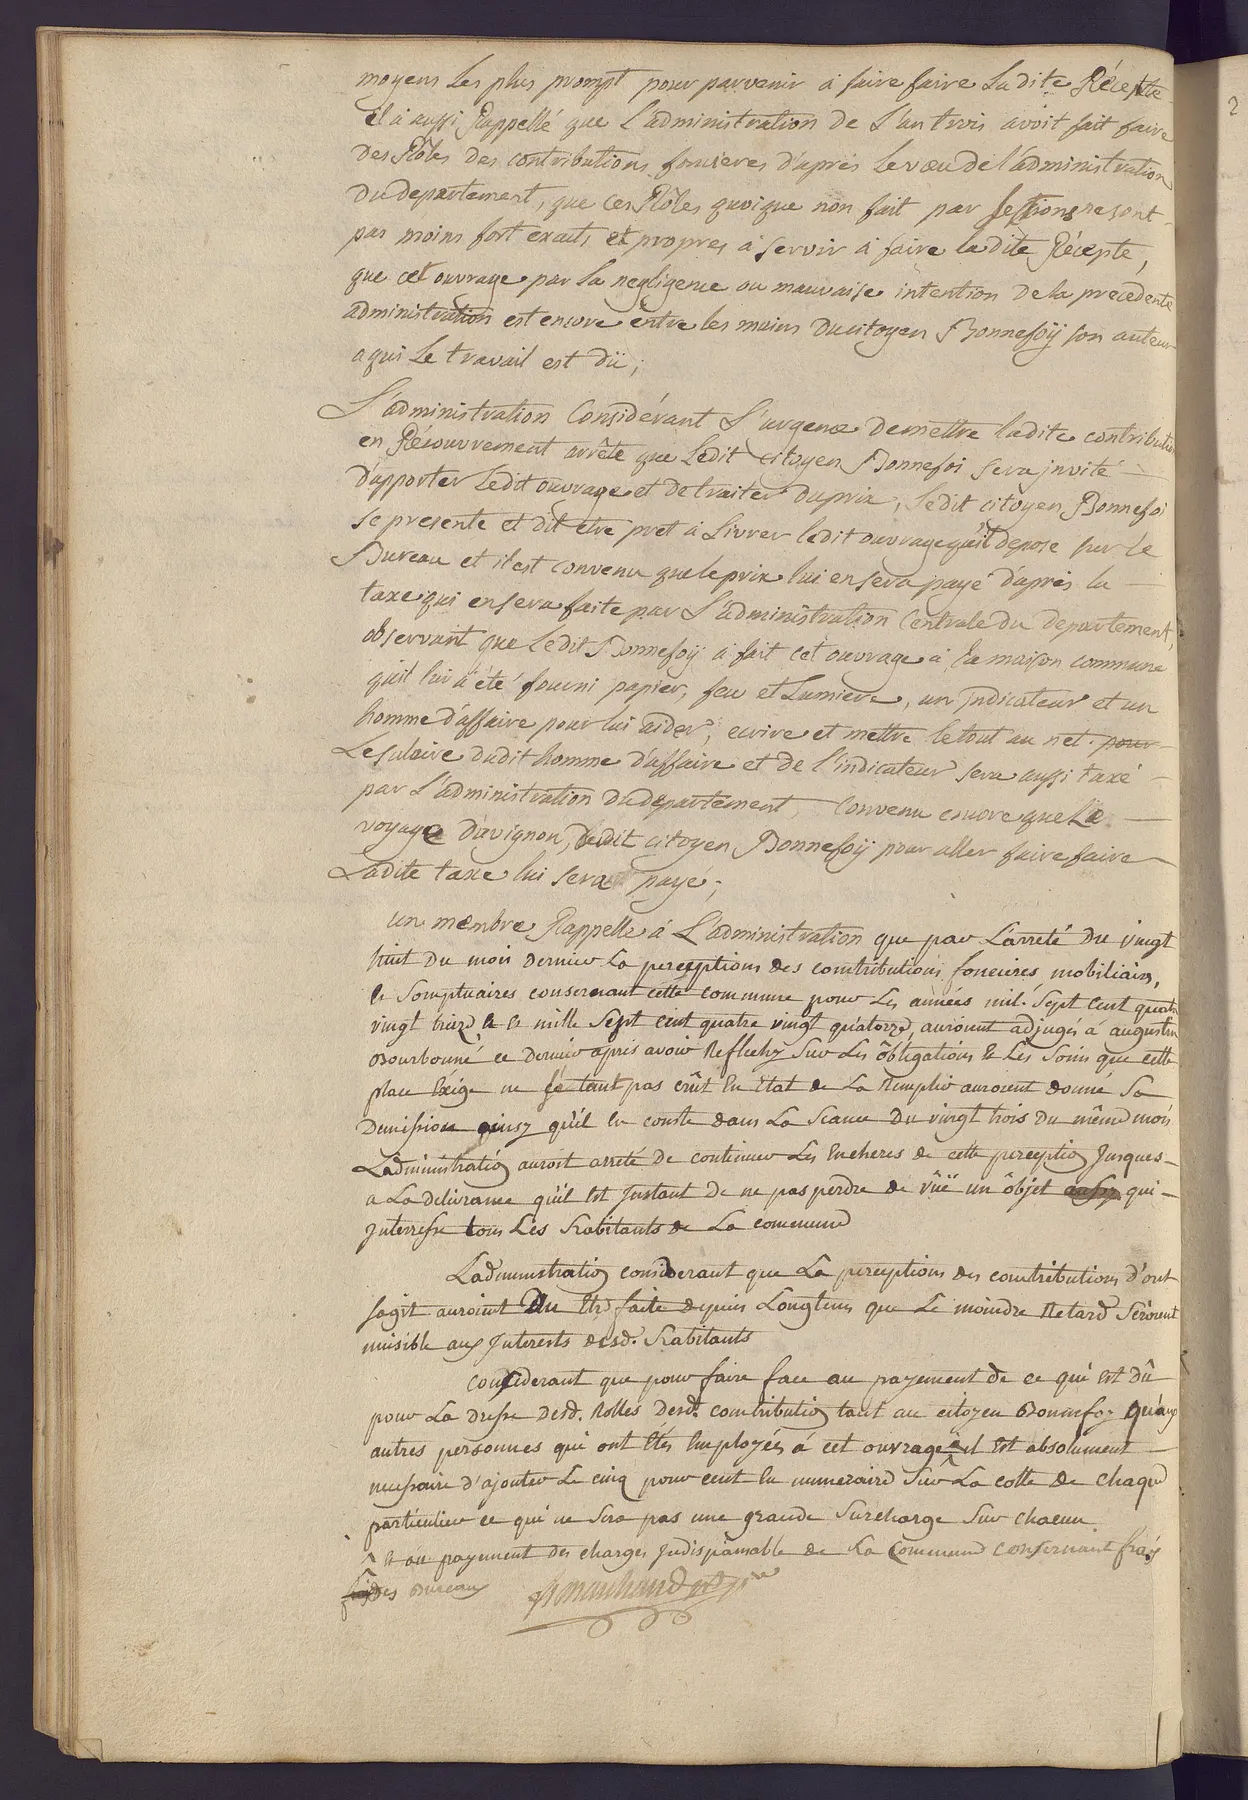 moyens les plus prompt pour parvenir a faire faire la dite Récepte
il à aussi Rappellé que l'administration de l'an trois avoit fait faire
des Rôles des contributions foncieres d'après le voeu de l'administration
du departement, que ces Rôles quoique non fait par sections ne sont
pas moins fort exacts et propres à servir à faire la dite Récepte,
que cet ouvrage par la negligence ou mauvaise intention de la precedente
administration est encore entre les mains du citoyen Bonnefoÿ son auteur
a qui le travail est dü ;
L'administration Considérant l'urgence de mettre la dite contribution
en Récouvrement arrête que ledit citoyen Bonnefoi sera jnvité
d'apporter ledit ouvrage et de traiter du prix, ledit citoyen Bonnefoi
se presente et dit etre pret a livrer ledit ouvrage qu'il depose sur le
Bureau et il est convenu que le prix lui en sera payé d'après la
taxe qui en sera faite par l'administration Centrale du departement,
observant que ledit Bonnefoÿ à fait cet ouvrage à la maison commune
qu'il lui a été fourni papier, feu et lumiere, un jndicateur et un
homme d'affaire pour lui aider, ecrire et mettre le tout au net. pour
Le salaire dudit homme d'affaire et de l'indicateur sera aussi taxé
par l'administration du departement, Convenu encore que le
voyage d'avignon, dudit citoyen Bonnefoÿ pour aller faire faire
Ladite taxe lui sera payé ;
un membre Rappelle à L'administration que par L'arreté du vingt
huit du mois dernier La perceptions des contributions foncieres, mobiliaires,
& somptuaires consernant cette commune pour Les années mil. sept cent quatre
vingt treize & mille sept cent quatre vingt quatorze, auroient adjugés à augustin
Bourbonné ce dernier apres avoir Reflechy sur Les obligations & Les soins que cette
place Exige ne se tant pas crût En Etat de La Remplir auroient donné sa
Demission ainsy qu'il en conste dans La seance du vingt trois du même mois
L'administration auroit arreté de continuer Les Encheres de cette perception Jusques
a La delivrance qu'il Est Jnstant de ne pas perdre de vüe un objet qui
Jnterresse tous Les habitants de La commune
L'administration considerant que La perceptions des contributions d'ont
sagit auroient Du Etre faite depuis Longtems que Le moindre Retard seroient
nuisible aux Jnterests desd. habitants
considerant que pour faire face au payement de ce qui Est dû
pour La dresse desd. Rolles desd. contribution tant au citoyen Bonnefoy qu'aux
autres personnes qui ont Etés Employés á cet ouvrage il Est absolument
necessaire d'ajouter Le cinq pour cent En numeraire sur La cotte de chaque
particulier ce qui ne sera pas une grande surcharge sur chacun
& au payement des charges Jndispansable de La Commune consernant frais
des Bureaux